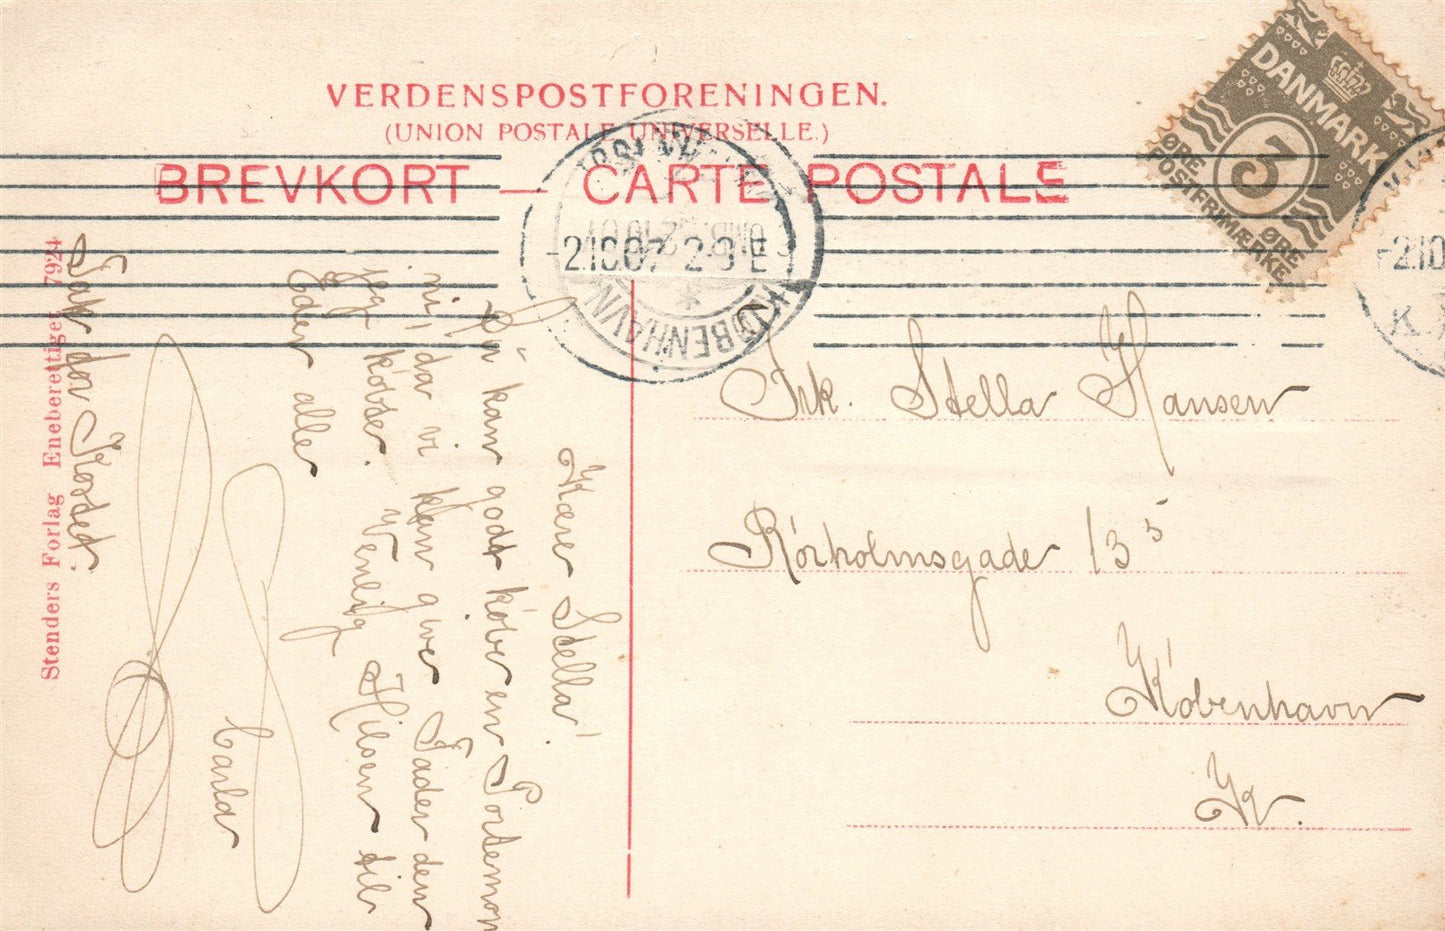 VERDENSPOSTFORENINGEN.
(UNION POSTALE UNIVERSELLE.)
BREVKORT — CARTE POSTALE
DANMARK
5
ØRE ØRE
POSTFRIMÆRKE
2.10.07 2-3 E
KØBENHAVN
2.10
K.
Frk. Stella Hansen
Rörholmsgade 13 5
Köbenhavn
K.
Kære Stella!
Du kan godt köbe en Portemon
ni, da vi kan give Fader den
jeg köbte. Venlig Hilsen til
Eder alle
Carla
Tak for Kortet.
Stenders Forlag Eneberettiget 7924